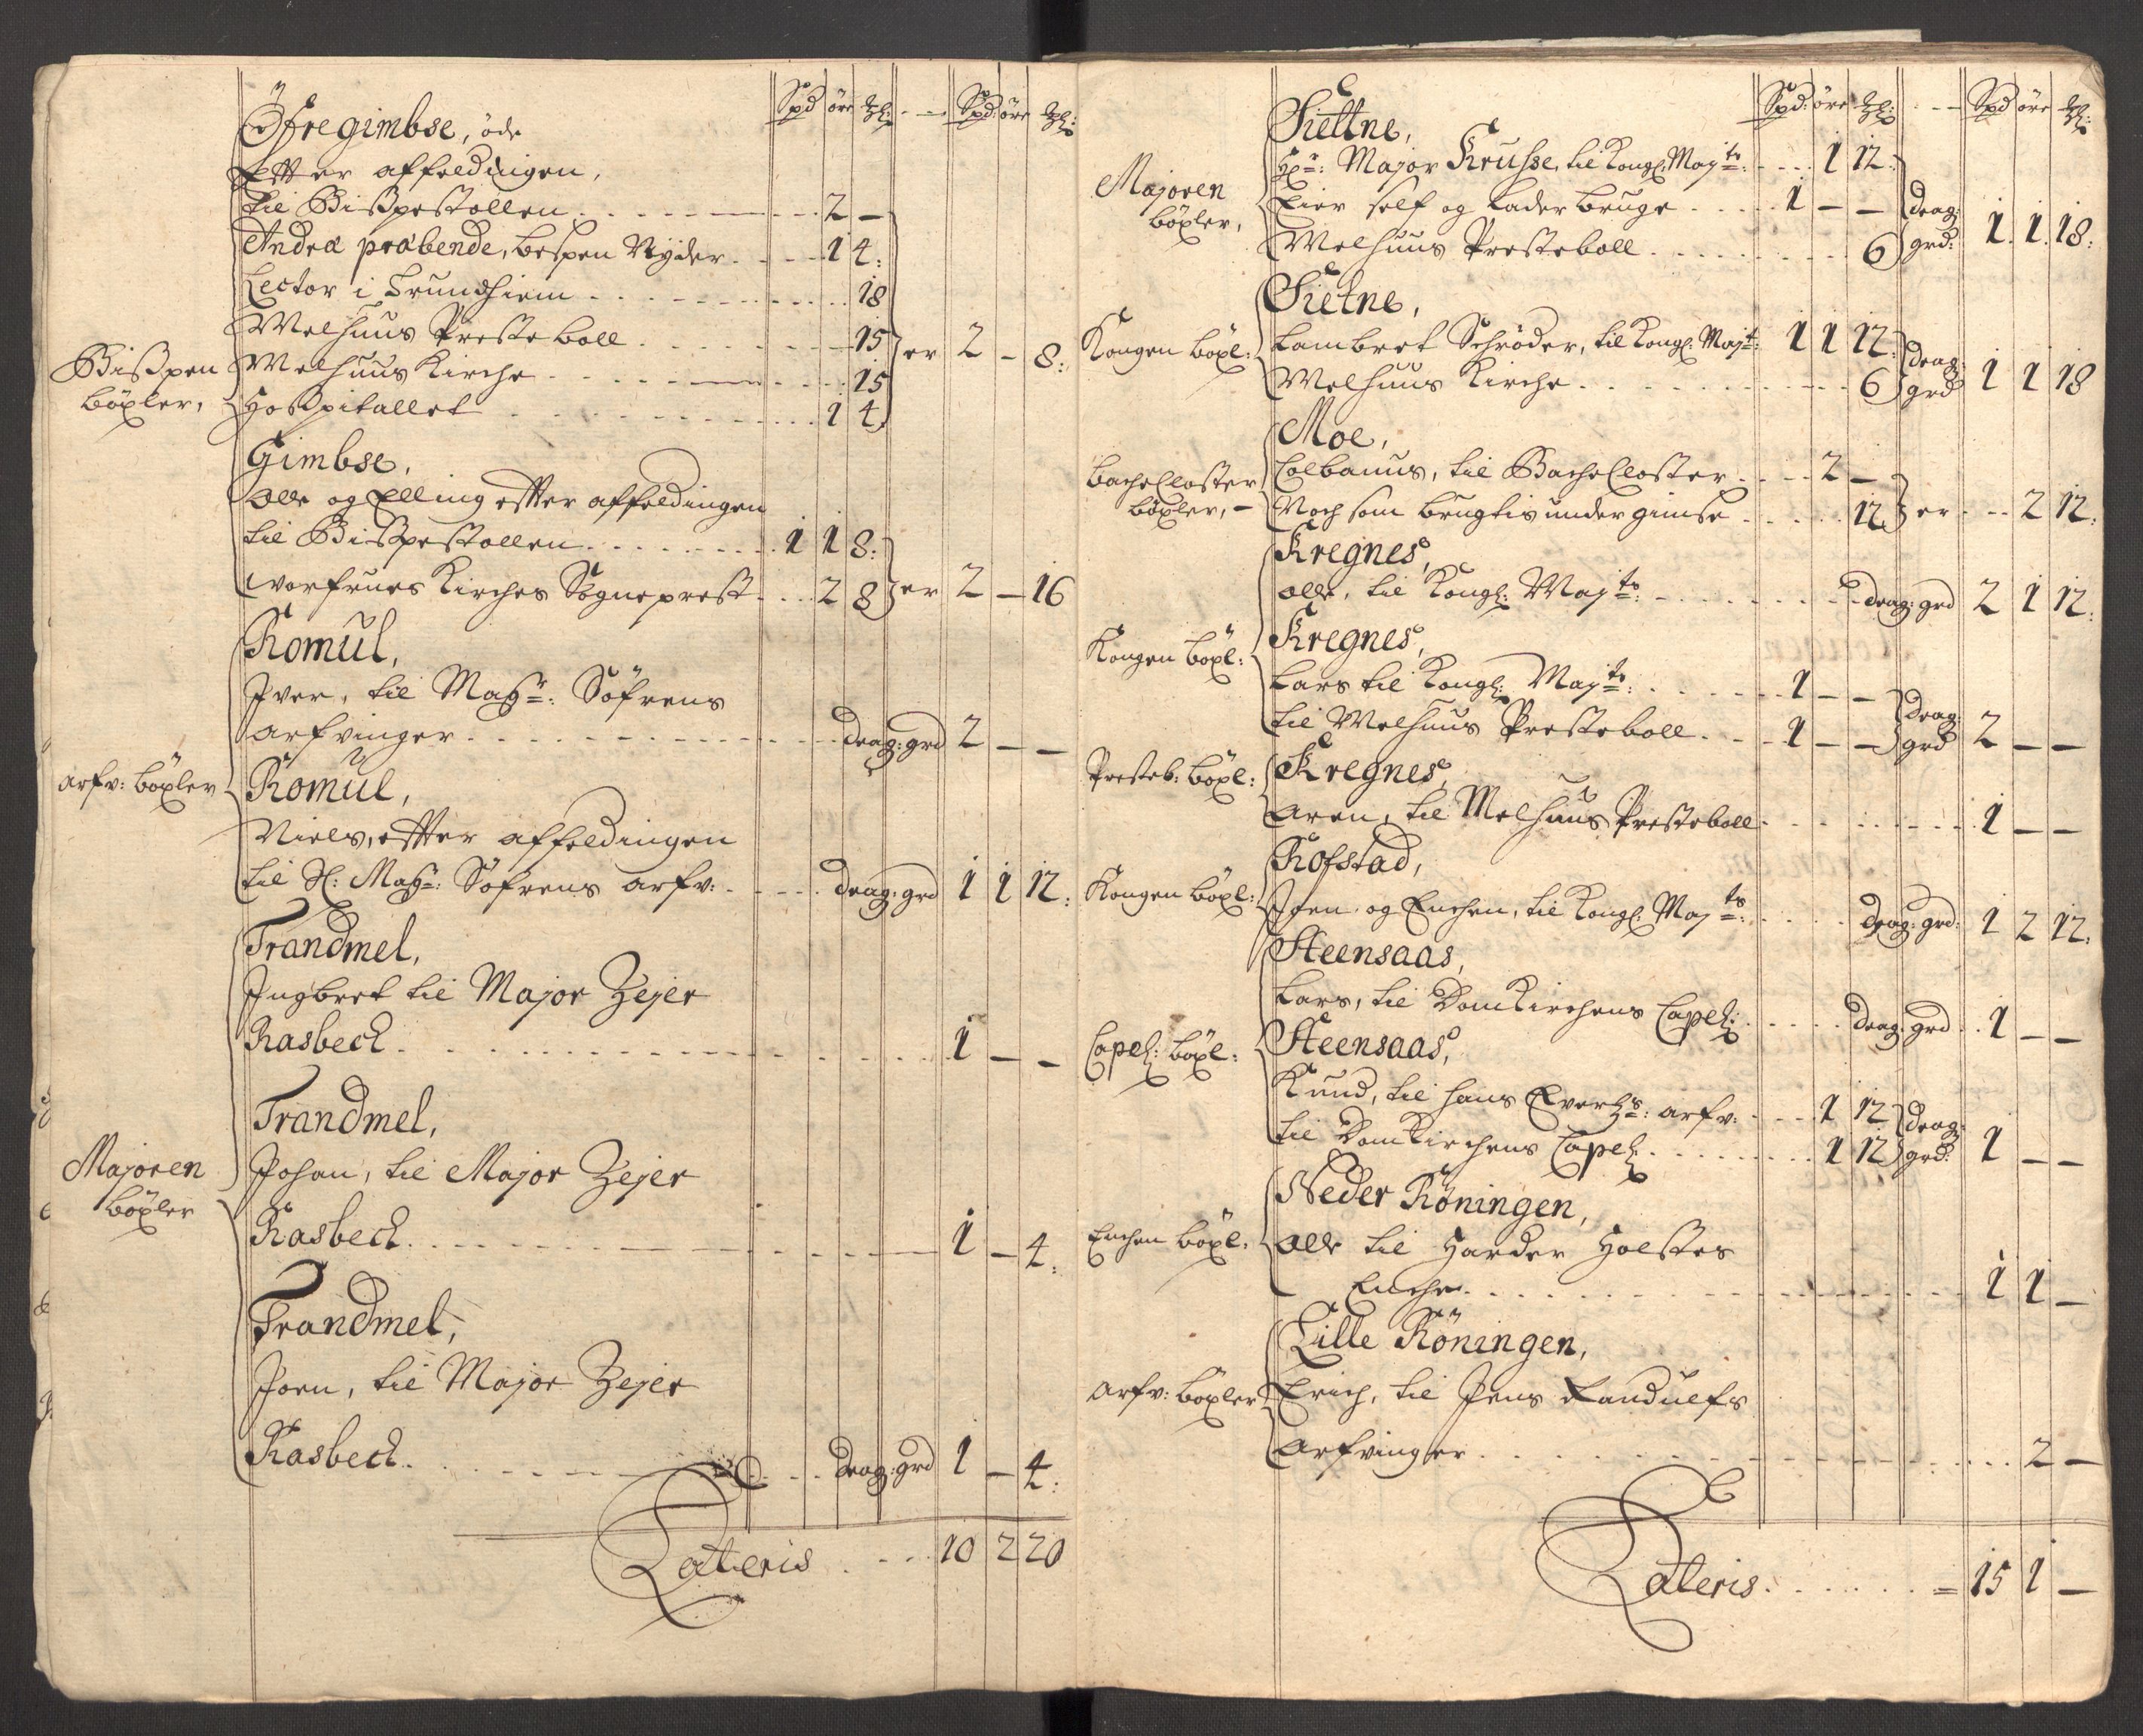 Spd öre ℔: — Spd: öre ℔:
Öfregimbse, öde
Efter affeldingen,
til Bispestollen 2 —
Andræ præbende, bespen Nyder 1 4:
Lector i Trundhiem 18
Melhuus Presteboll 15
Bispen böxler, Melhuus Kirche 15 er 2 — 8:
Hospitallet 1 4
Gimbse,
Olle og Elling efter affeldingen
til Bispestollen 1 1 8:
Vorfrues Kirches Sogneprest 2 8 er 2 — 16
Romul,
Iver, til Magr: Söfrens
arfvinger drag: grd 2 — —
arfv: böxler
Romul,
Niels, efter affeldingen
til Sl: Magr: Söfrens arfv: drag: grd 1 1 12:
Trandmel,
Ingbret til Major Zejer
Rasbech 1 — —
Trandmel,
Majoren böxler
Johan, til Major Zejer
Rasbech 1 — 4:
Trandmel,
Joen, til Major Zejer
Rasbech drag: grd 1 — 4:
Lateris 10 2 20
Spd: öre ℔: — Spd öre ℔:
Siettne,
Majoren böxler,
Hr: Major Krusse, til Kongl: Majts: 1 12
Eier self og lader bruge 1 — — drag: grd: 1. 1. 18:
Melhuus Presteboll 6
Sietne,
Kongen böxl: Lambret Schröder, til Kongl: Majt: 1 1 12
Melhuus Kirche 6 drag: grd 1 1 18
Moe,
Bache Closter böxler, — Colbanus, til Bache Closter 2 —
Noch som brugtis under gimse 12 er 2 12:
Kregnes,
Olle, til Kongl: Majts: drag: grd 2 1 12:
Kongen böxl:
Kregnes,
Lars til Kongl: Majts: 1 — —
til Melhuus Presteboll 1 — — drag: grd 2 — —
Presteb: böxl:
Kregnes,
Aren, til Melhuus Presteboll 1 — —
Rofstad,
Kongen böxl: Joen og Enchen, til Kongl: Majts: drag: grd: 1 2 12:
Steensaas,
Lars, til Domkirchens Capel: drag: grd 1 — —
Capel: böxl:
Steensaas,
Knud, til Hans Evertzs: arfv: 1 12
til Domkirchens Capel: 1 12 drag: grd: 1 — —
Neder Röningen,
Enchen böxl: Olle til Harder Holstes
Enche 1 1 —
Lille Röningen,
arfv: böxler Erich, til Jens Randulfs
Arfvinger 2 —
Lateris = 15 1 —